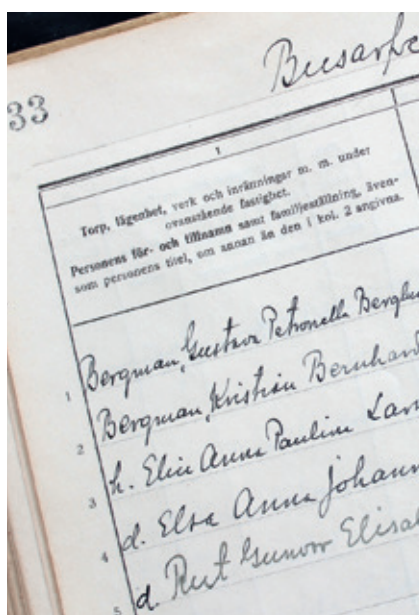 33
Busarp
1
Torp, lägenhet, verk och inrättningar m. m. under
ovanstående fastighet.
Personens för- och tillnamn samt familjeställning, även-
som personens titel, om annan än den i kol. 2 angivna.
1 Bergman, Gustava Petronella
2 Bergman, Kristian Bernhard
3 h. Elin Anna Paulina Lar
4 d. Elsa Anna Johann
5 d. Rut Gunvor Elisa